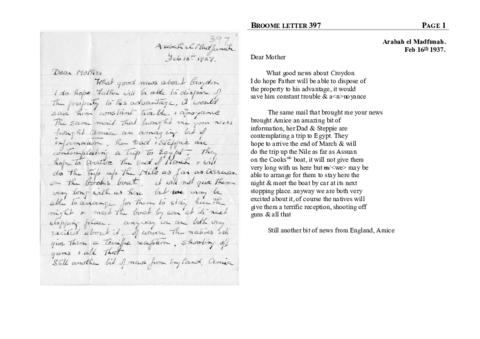 397
Arabah el Madfunah
Feb 16th 1937.
Dear Mother
What good news about Croydon
I do hope Father will be able to dispose of
the property to his advantage, it would
save him constant trouble & anoyance
The same mail that brought me your news
brought Amice an amazing bit of
information, her Dad & Steppie are
contemplating a trip to Egypt. They
hope to arrive the end of March & will
do the trip up the Nile as far as Assuan
on the Cooks boat, it will not give them
very long with us here but we may be
able to arrange for them to stay here the
night & meet the boat by car at its next
stopping place. anyway we are both very
excited about it, of course the natives will
give them a terrific reception, shooting off
guns & all that
Still another bit of news from England, Amice
BROOME LETTER 397 PAGE 1
Arabah el Madfunah.
Feb 16th 1937.
Dear Mother
What good news about Croydon
I do hope Father will be able to dispose of
the property to his advantage, it would
save him constant trouble & a<n>noyance
The same mail that brought me your news
brought Amice an amazing bit of
information, her Dad & Steppie are
contemplating a trip to Egypt. They
hope to arrive the end of March & will
do the trip up the Nile as far as Assuan
on the Cooks boat, it will not give them
very long with us here but <we> may be
able to arrange for them to stay here the
night & meet the boat by car at its next
stopping place. anyway we are both very
excited about it, of course the natives will
give them a terrific reception, shooting off
guns & all that
Still another bit of news from England, Amice